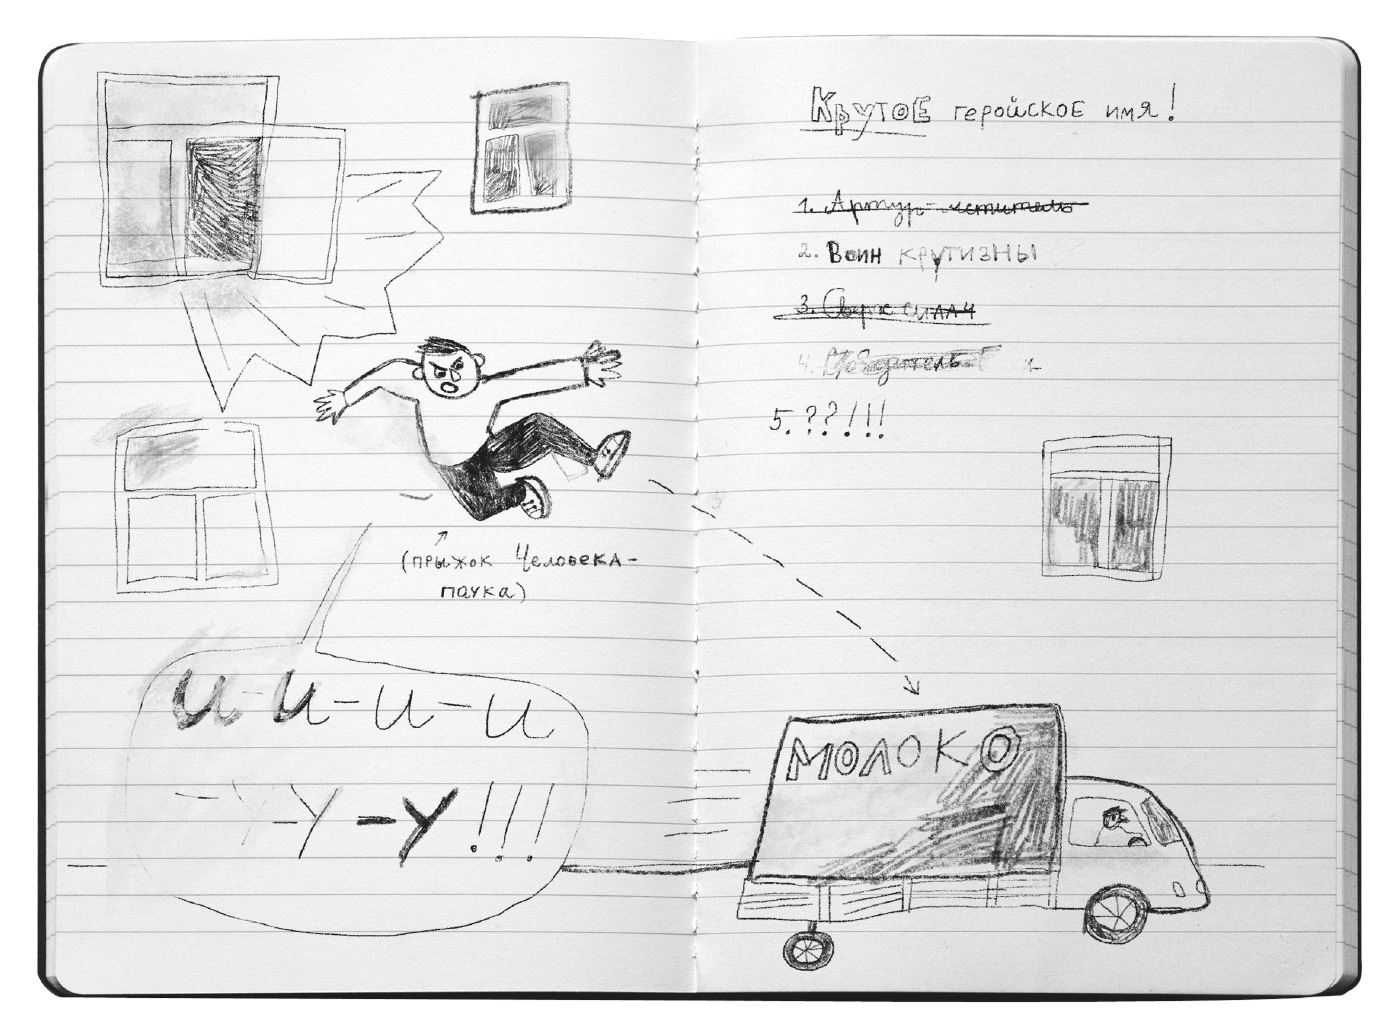 Крутое геройское имя!
1. Артур-мститель
2. Воин крутизны
3. Сверхсилач
4. Победитель
5. ??!!!
(прыжок Человека-
паука)
и-и-и-и
-У-У-У!!!
МОЛОКО